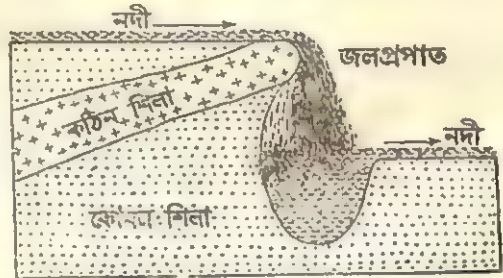 নদী
জলপ্রপাত
নদী
কঠিন শিলা
কোমল শিলা